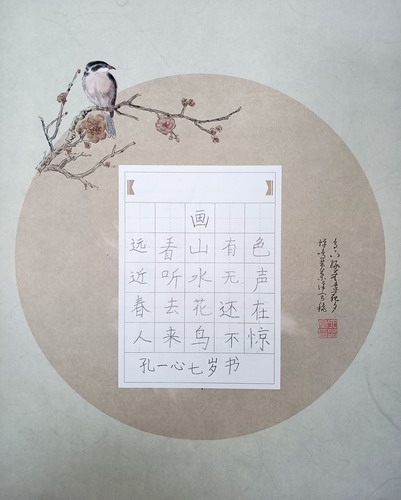 画
远看山有色
近听水无声
春去花还在
人来鸟不惊
孔一心七岁书